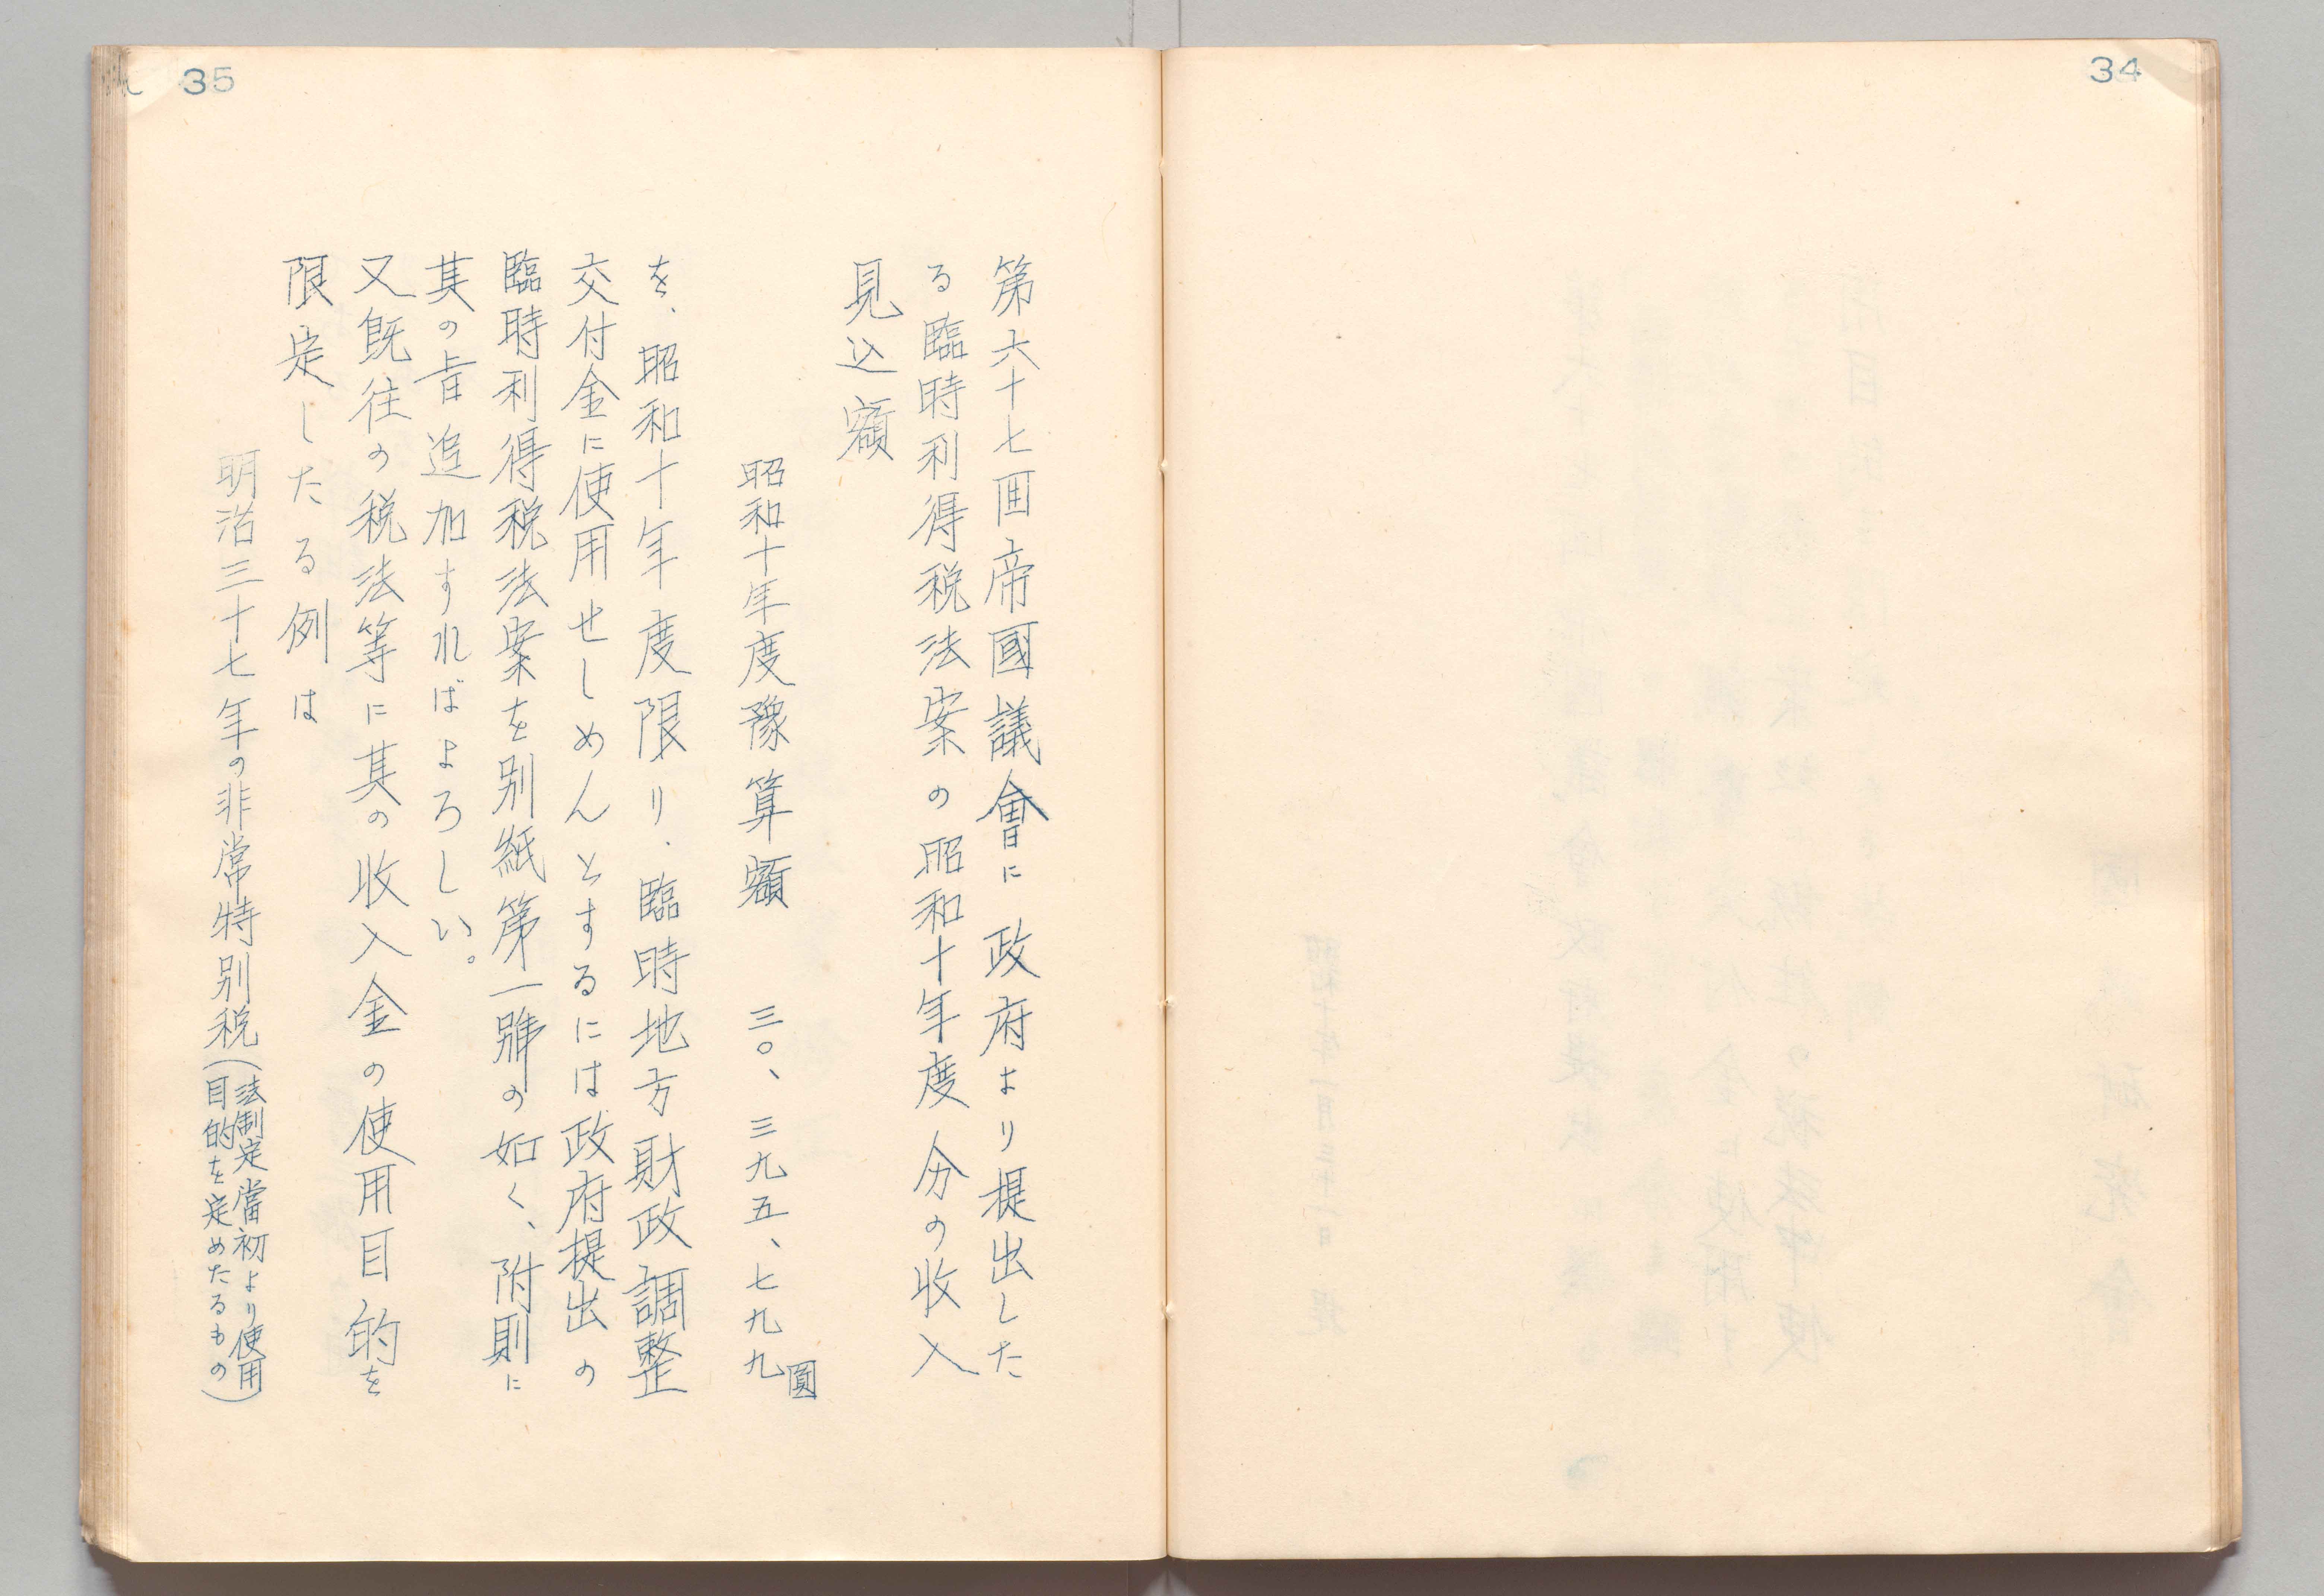 34
35
第六十七囘帝國議會に政府より提出した
る臨時利得税法案の昭和十年度分の收入
見込額
昭和十年度豫算額 三〇、三九五、七九九圓
を、昭和十年度限り、臨時地方財政調整
交付金に使用せしめんとするには政府提出の
臨時利得税法案を別紙第一號の如く、附則に
其の旨追加すればよろしい。
又既往の税法等に其の收入金の使用目的を
限定したる例は
明治三十七年の非常特別税(法制定當初より使用
目的を定めたるもの)